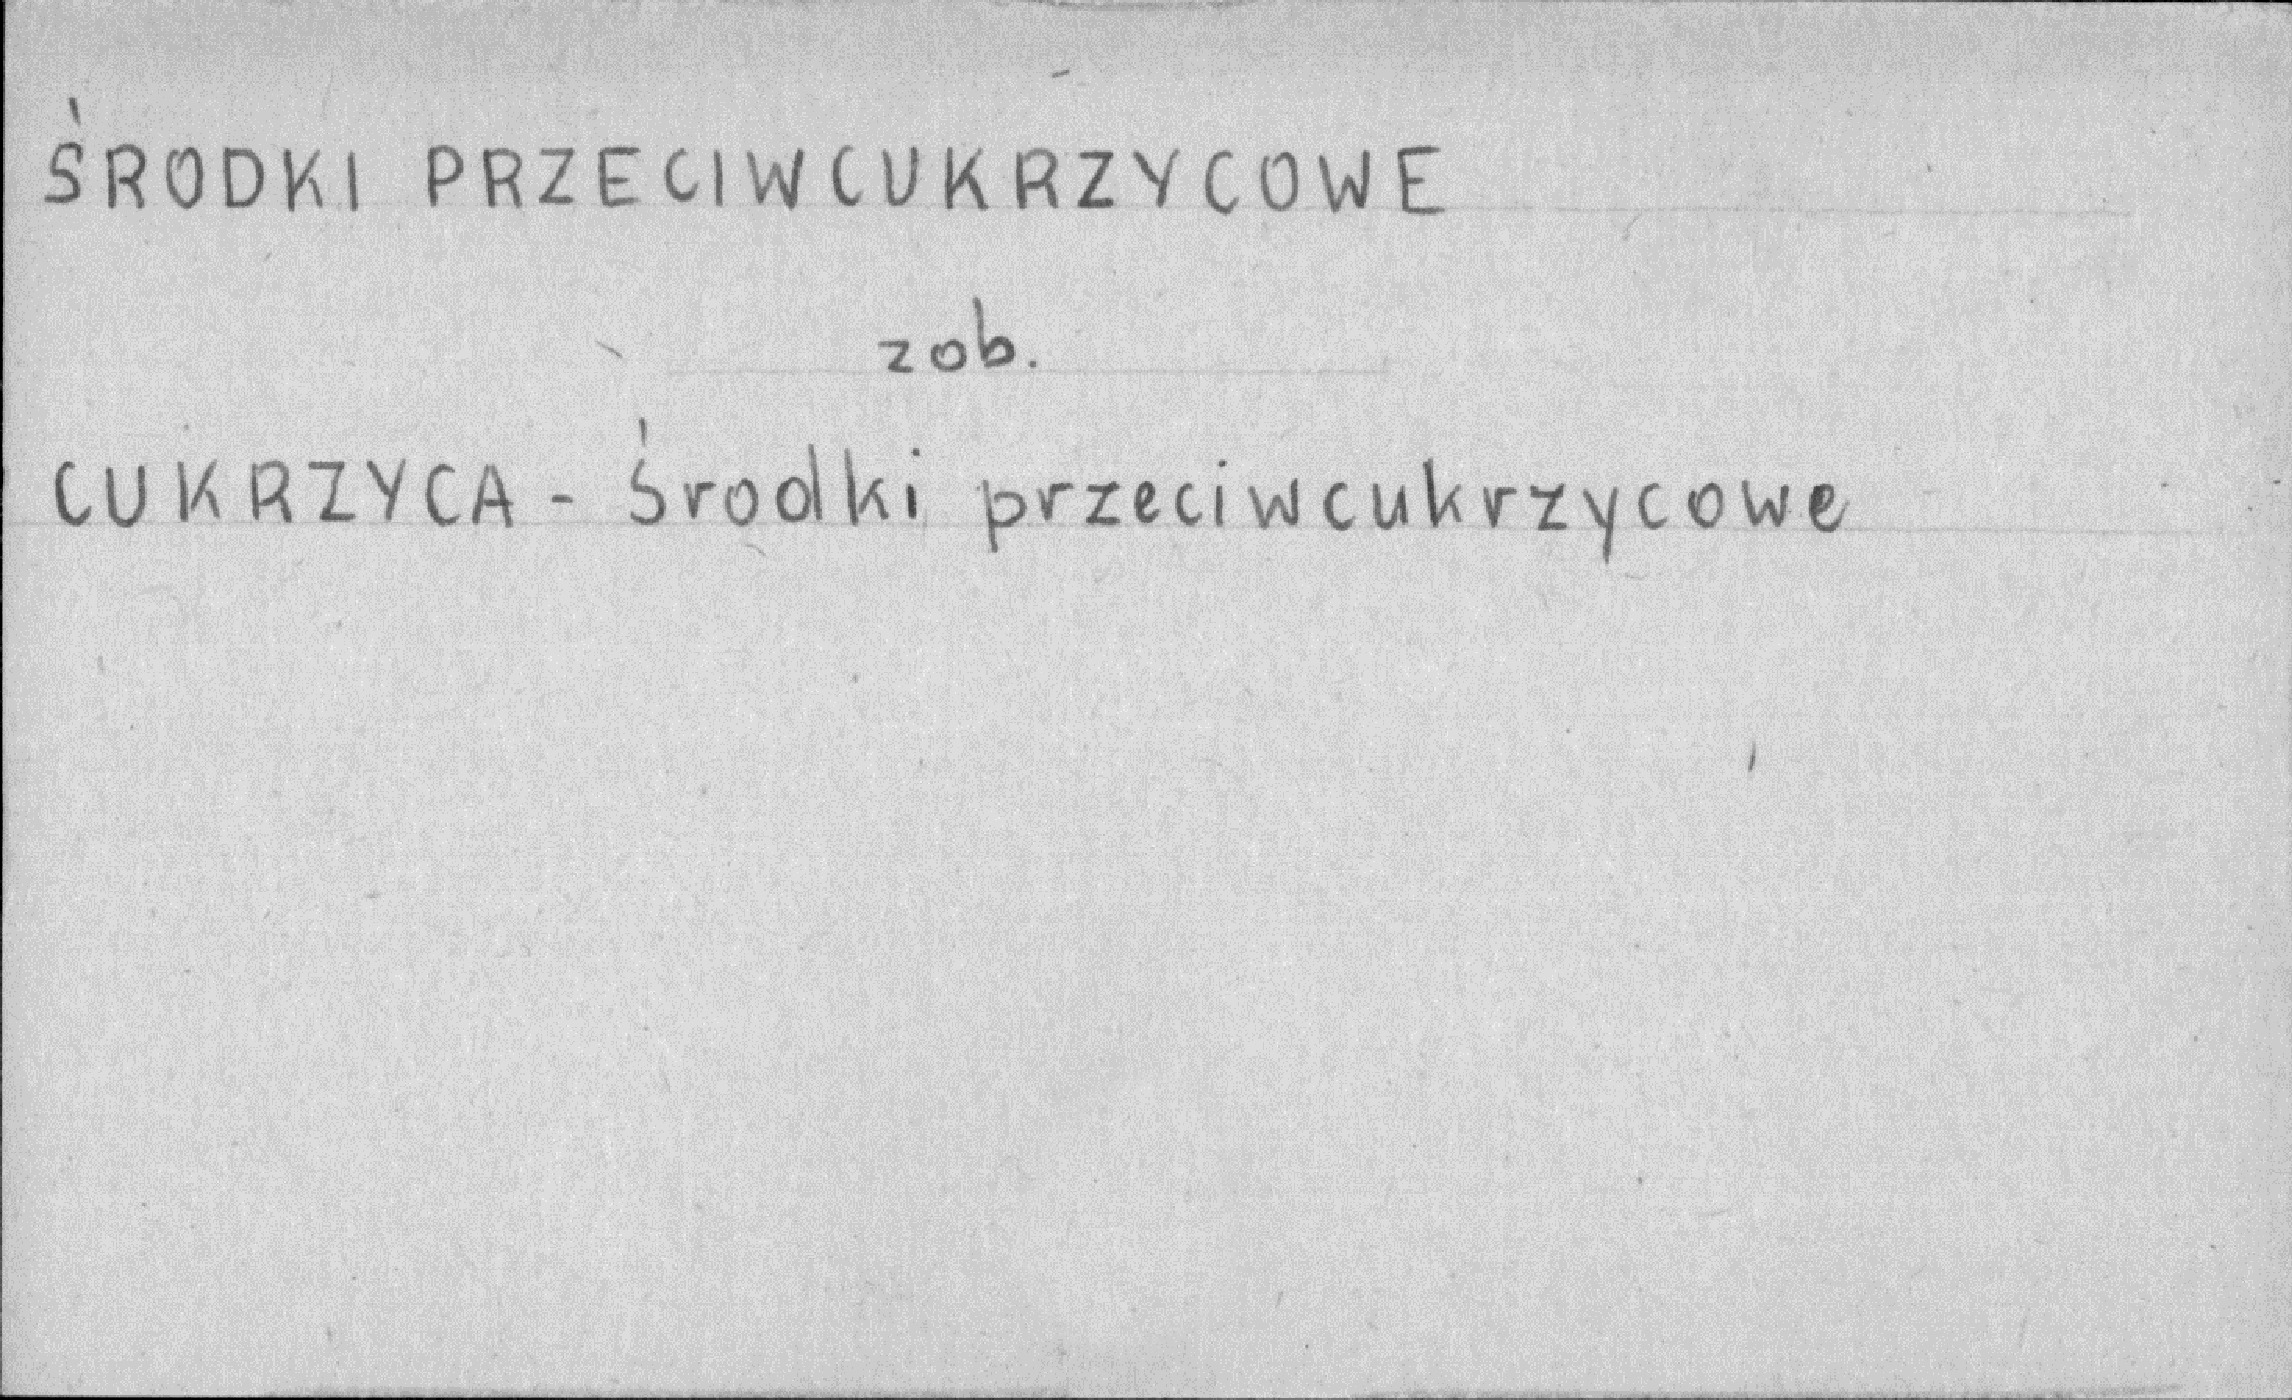 ŚRODKI PRZECIWCUKRZYCOWE
zob.
CUKRZYCA - Środki przeciwcukrzycowe